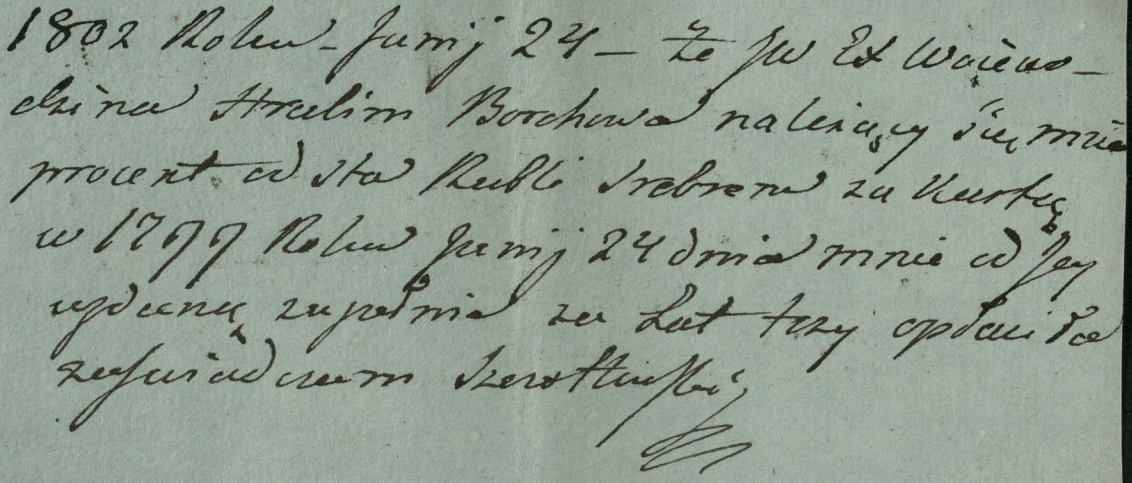 1802 Roku - Junij 24 - że JW Ex Woiewo-
dzina Borchowa należący się mnie
procent od sta Rubli srebrem za Kartą
w 1799 Roku Junij 24 dnia mnie od Jey
wydaną zupełnie za Lat trzy opłaciła
zaświadczam